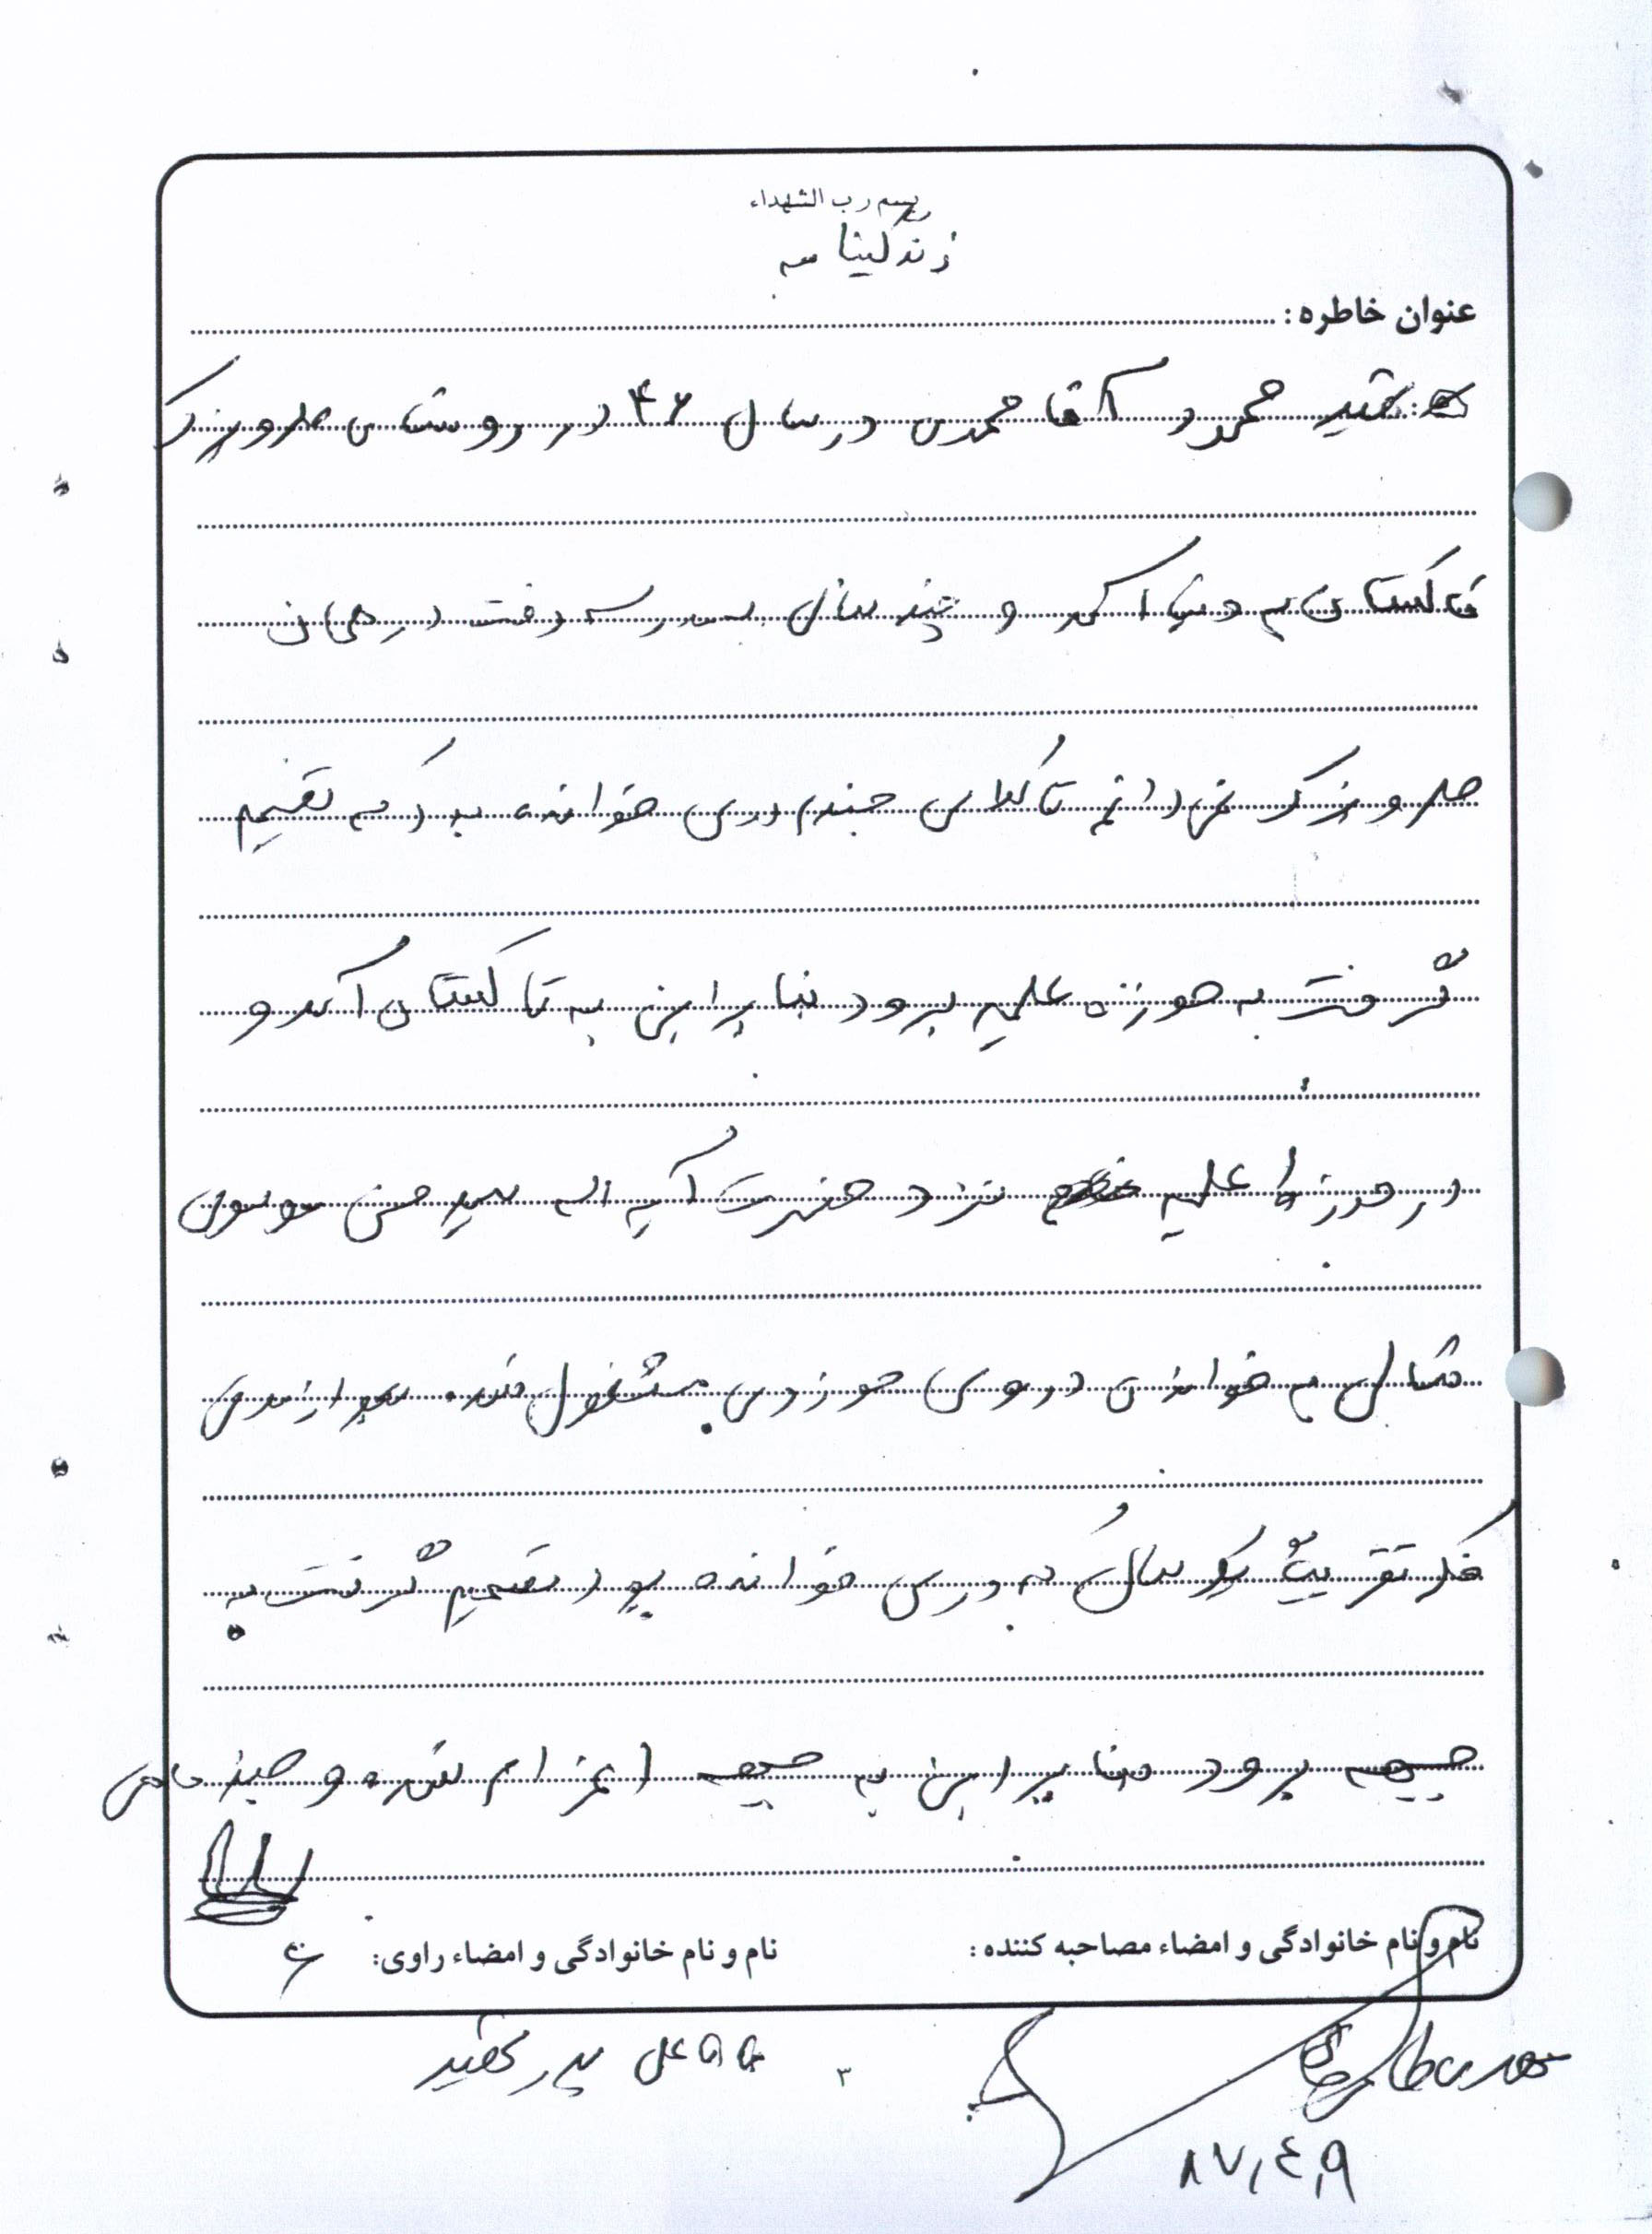 بسم رب الشهداء
زندگینامه
عنوان خاطره :
شهید محمود آقا محمدی در سال ۴۶ در روستای ضروبزرگ
تاکستان به دنیا آمد و چند سال به مدرسه رفت در همان
نمی دانم تا کلاس چندم درس خوانده بود که تصمیم
گرفت به حوزه علمیه برود بنابراین به تاکستان آمد و
در حوزه علمیه نزد حضرت آیه اله سید حسن موسوی
شالی به خواندن دروس حوزوی مشغول شد. بعد از مدتی
فکر تقریباً یک سالی که درس خوانده بود تصمیم گرفت به
جبهه برود بنابراین به جبهه اعزام شده و چند ماهی
نام و نام خانوادگی و امضاء مصاحبه کننده :
نام و نام خانوادگی و امضاء راوی:
آقا علی پدر شهید
۳
۸۷،٤،۹